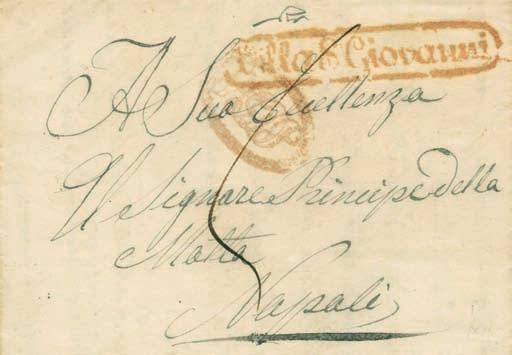 Villa S. Giovanni
A Sua Eccellenza
Il Signore Principe della
Motta
Napoli